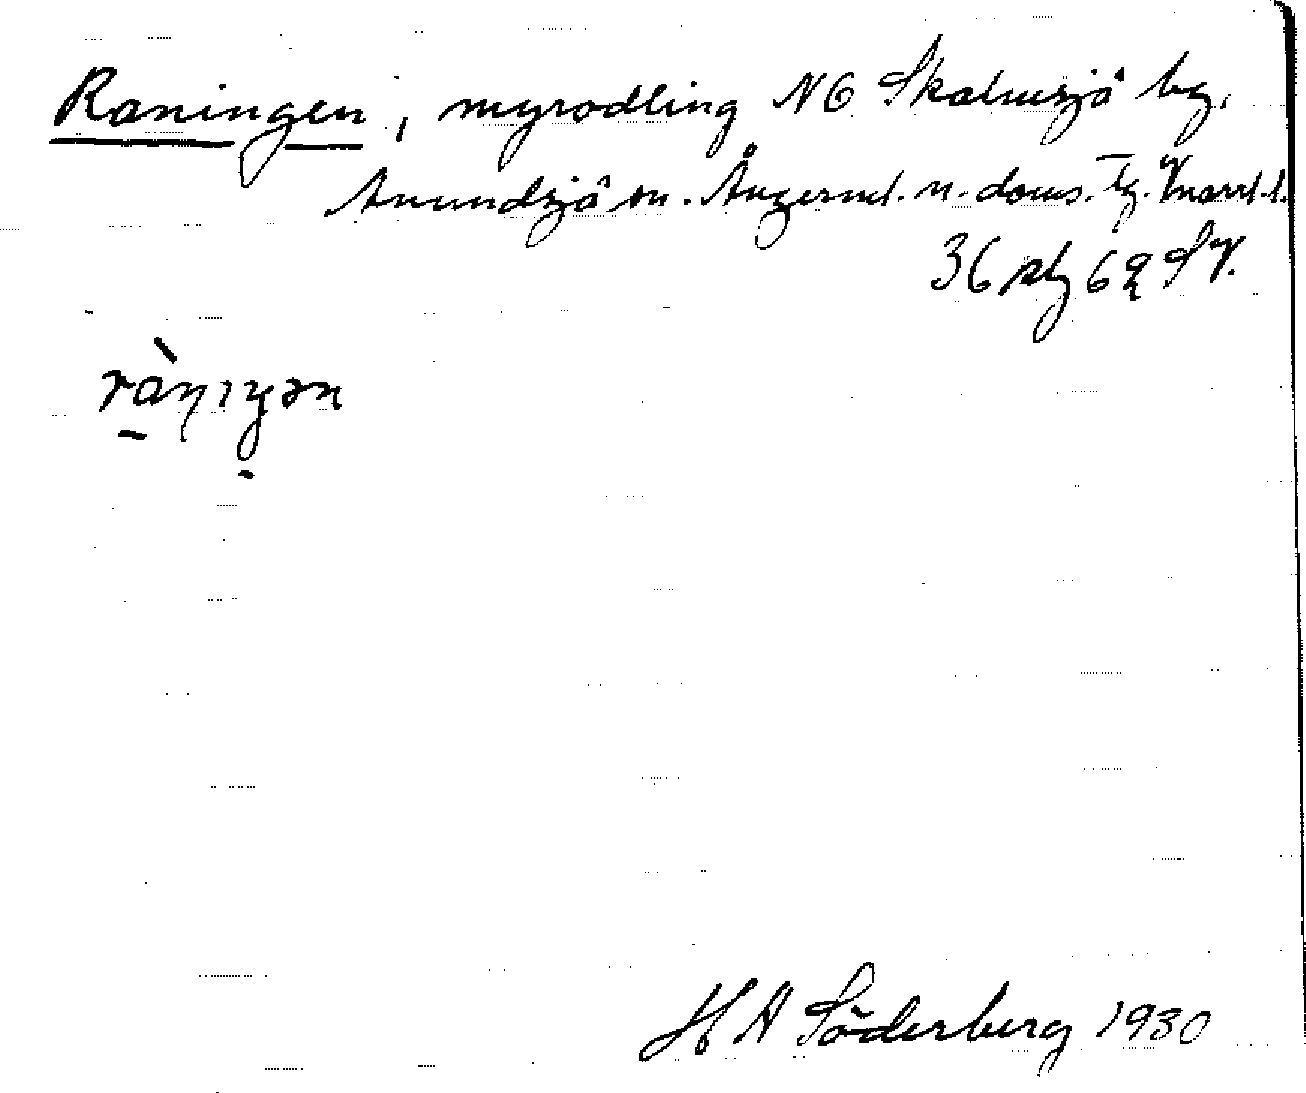 Raningen, myrodling NO Skalmsjö by,
Anundsjö sn. Ångerml. n. doms. tg. Västernorrl. l.
36 Sv.
rànıŋən
H A Söderberg 1930